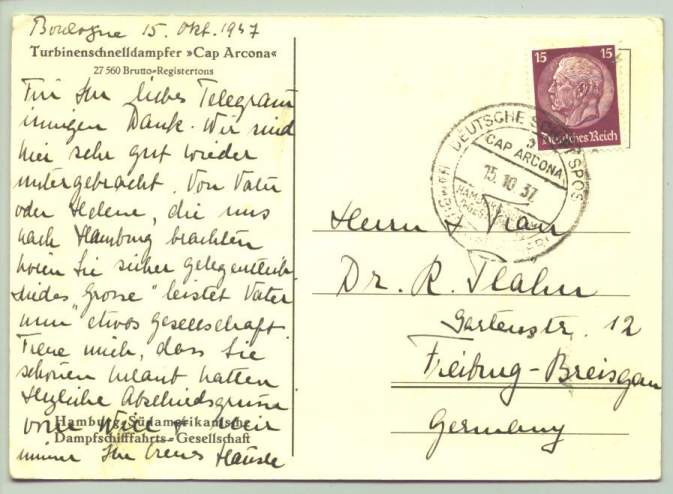 Boulogne 15. Okt. 1937
Turbinenschnelldampfer »Cap Arcona«
27 560 Brutto-Registertons
Für Ihr liebes Telegramm
innigen Dank. Wir sind
hier sehr gut wieder
untergebracht. Von Vater
oder Helene, die uns
nach Hamburg brachten
hören Sie sicher gelegentlich.
"Grosse" leistet Vater
nun etwas Gesellschaft.
Freue mich, dass Sie
schönen Urlaub hatten
Herzliche Abschiedsgrüsse
von Willi &
immer Ihr treues
Hamburg-Südamerikanische
Dampfschifffahrts-Gesellschaft
15 15
Deutsches Reich
DEUTSCHE SCHIFFSPOST
CAP ARCONA
15.10.37
HAMBURG
Herrn & Frau
Dr. R. Flahn
Gartenstr. 12
Freiburg-Breisgau
Germany